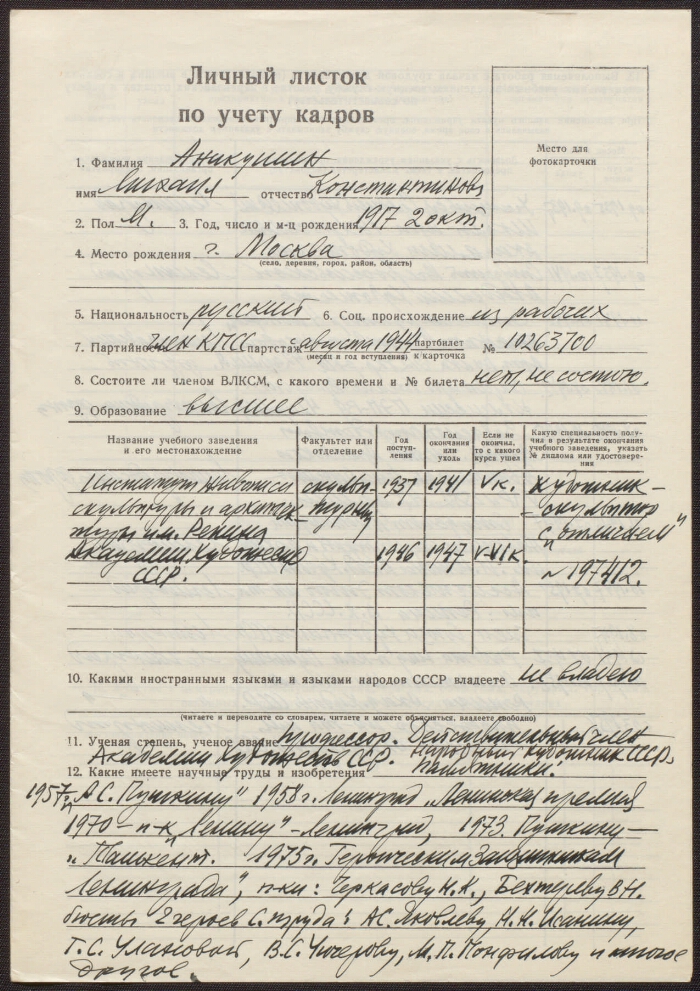 Личный листок
по учету кадров
Место для
фотокарточки
1. Фамилия Аникушин
имя Михаил отчество Константинов
2. Пол М. 3. Год, число и м-ц рождения 1917 2 окт.
4. Место рождения г. Москва
(село, деревня, город, район, область)
5. Национальность русский 6. Соц. происхождение из рабочих
7. Партийность член КПСС партстаж с августа 1944 партбилет № 10263700
(месяц и год вступления) к карточка
8. Состоите ли членом ВЛКСМ, с какого времени и № билета нет, не состою.
9. Образование высшее
Название учебного заведения и его местонахождение
Факультет или отделение
Год поступления
Год окончания или ухода
Если не окончил, то с какого курса ушел
Какую специальность получил в результате окончания учебного заведения, указать № диплома или удостоверения
Институт живописи скульп- 1937 1941 V к. художник-
скульптуры и архитек- турный -скульптор
туры им. Репина с "отличием"
Академии Художеств 1946 1947 V-VI к.
СССР. № 197412.
10. Какими иностранными языками и языками народов СССР владеете не владею
(читаете и переводите со словарем, читаете и можете объясняться, владеете свободно)
11. Ученая степень, ученое звание профессор. Действительный член
Академии Художеств СССР. Народный художник СССР.
12. Какие имеете научные труды и изобретения памятники.
1957 г. А.С. Пушкину" 1958 г. Ленинград „Ленинская премия
1970 – п-к „Ленину" – Ленинград, 1973. Пушкину –
„Ташкент. 1975 г. Героическим защитникам
Ленинграда", п-ки: Черкасову Н.К., Бехтереву В.Н.
бюсты 2 героев С. труда: А.С. Яковлеву, Н.Н. Исанину,
Г.С. Улановой, В.С. Чичерову, М.П. Панфилову и многое
другое.